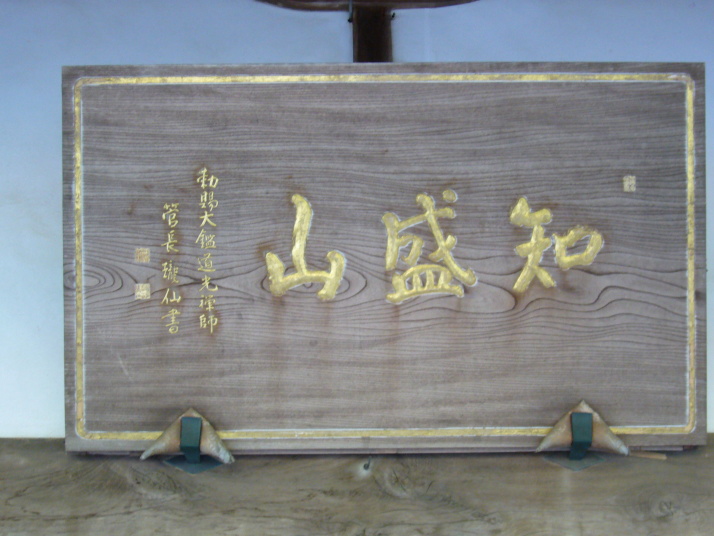 知盛山
勅賜大鑑道光禅師
管長瓏仙書